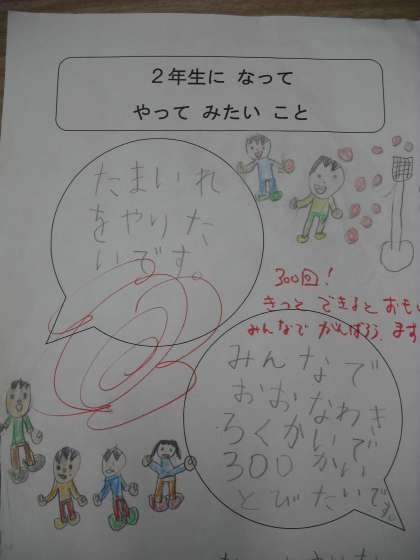 ２年生に なって
やって みたい こと
たまいれ
をやりた
いです。
300回！
きっと できるとおもい
みんなで がんばろう ます
みんなで
おおなわき
ろくかいで
300かい
とびたいです。